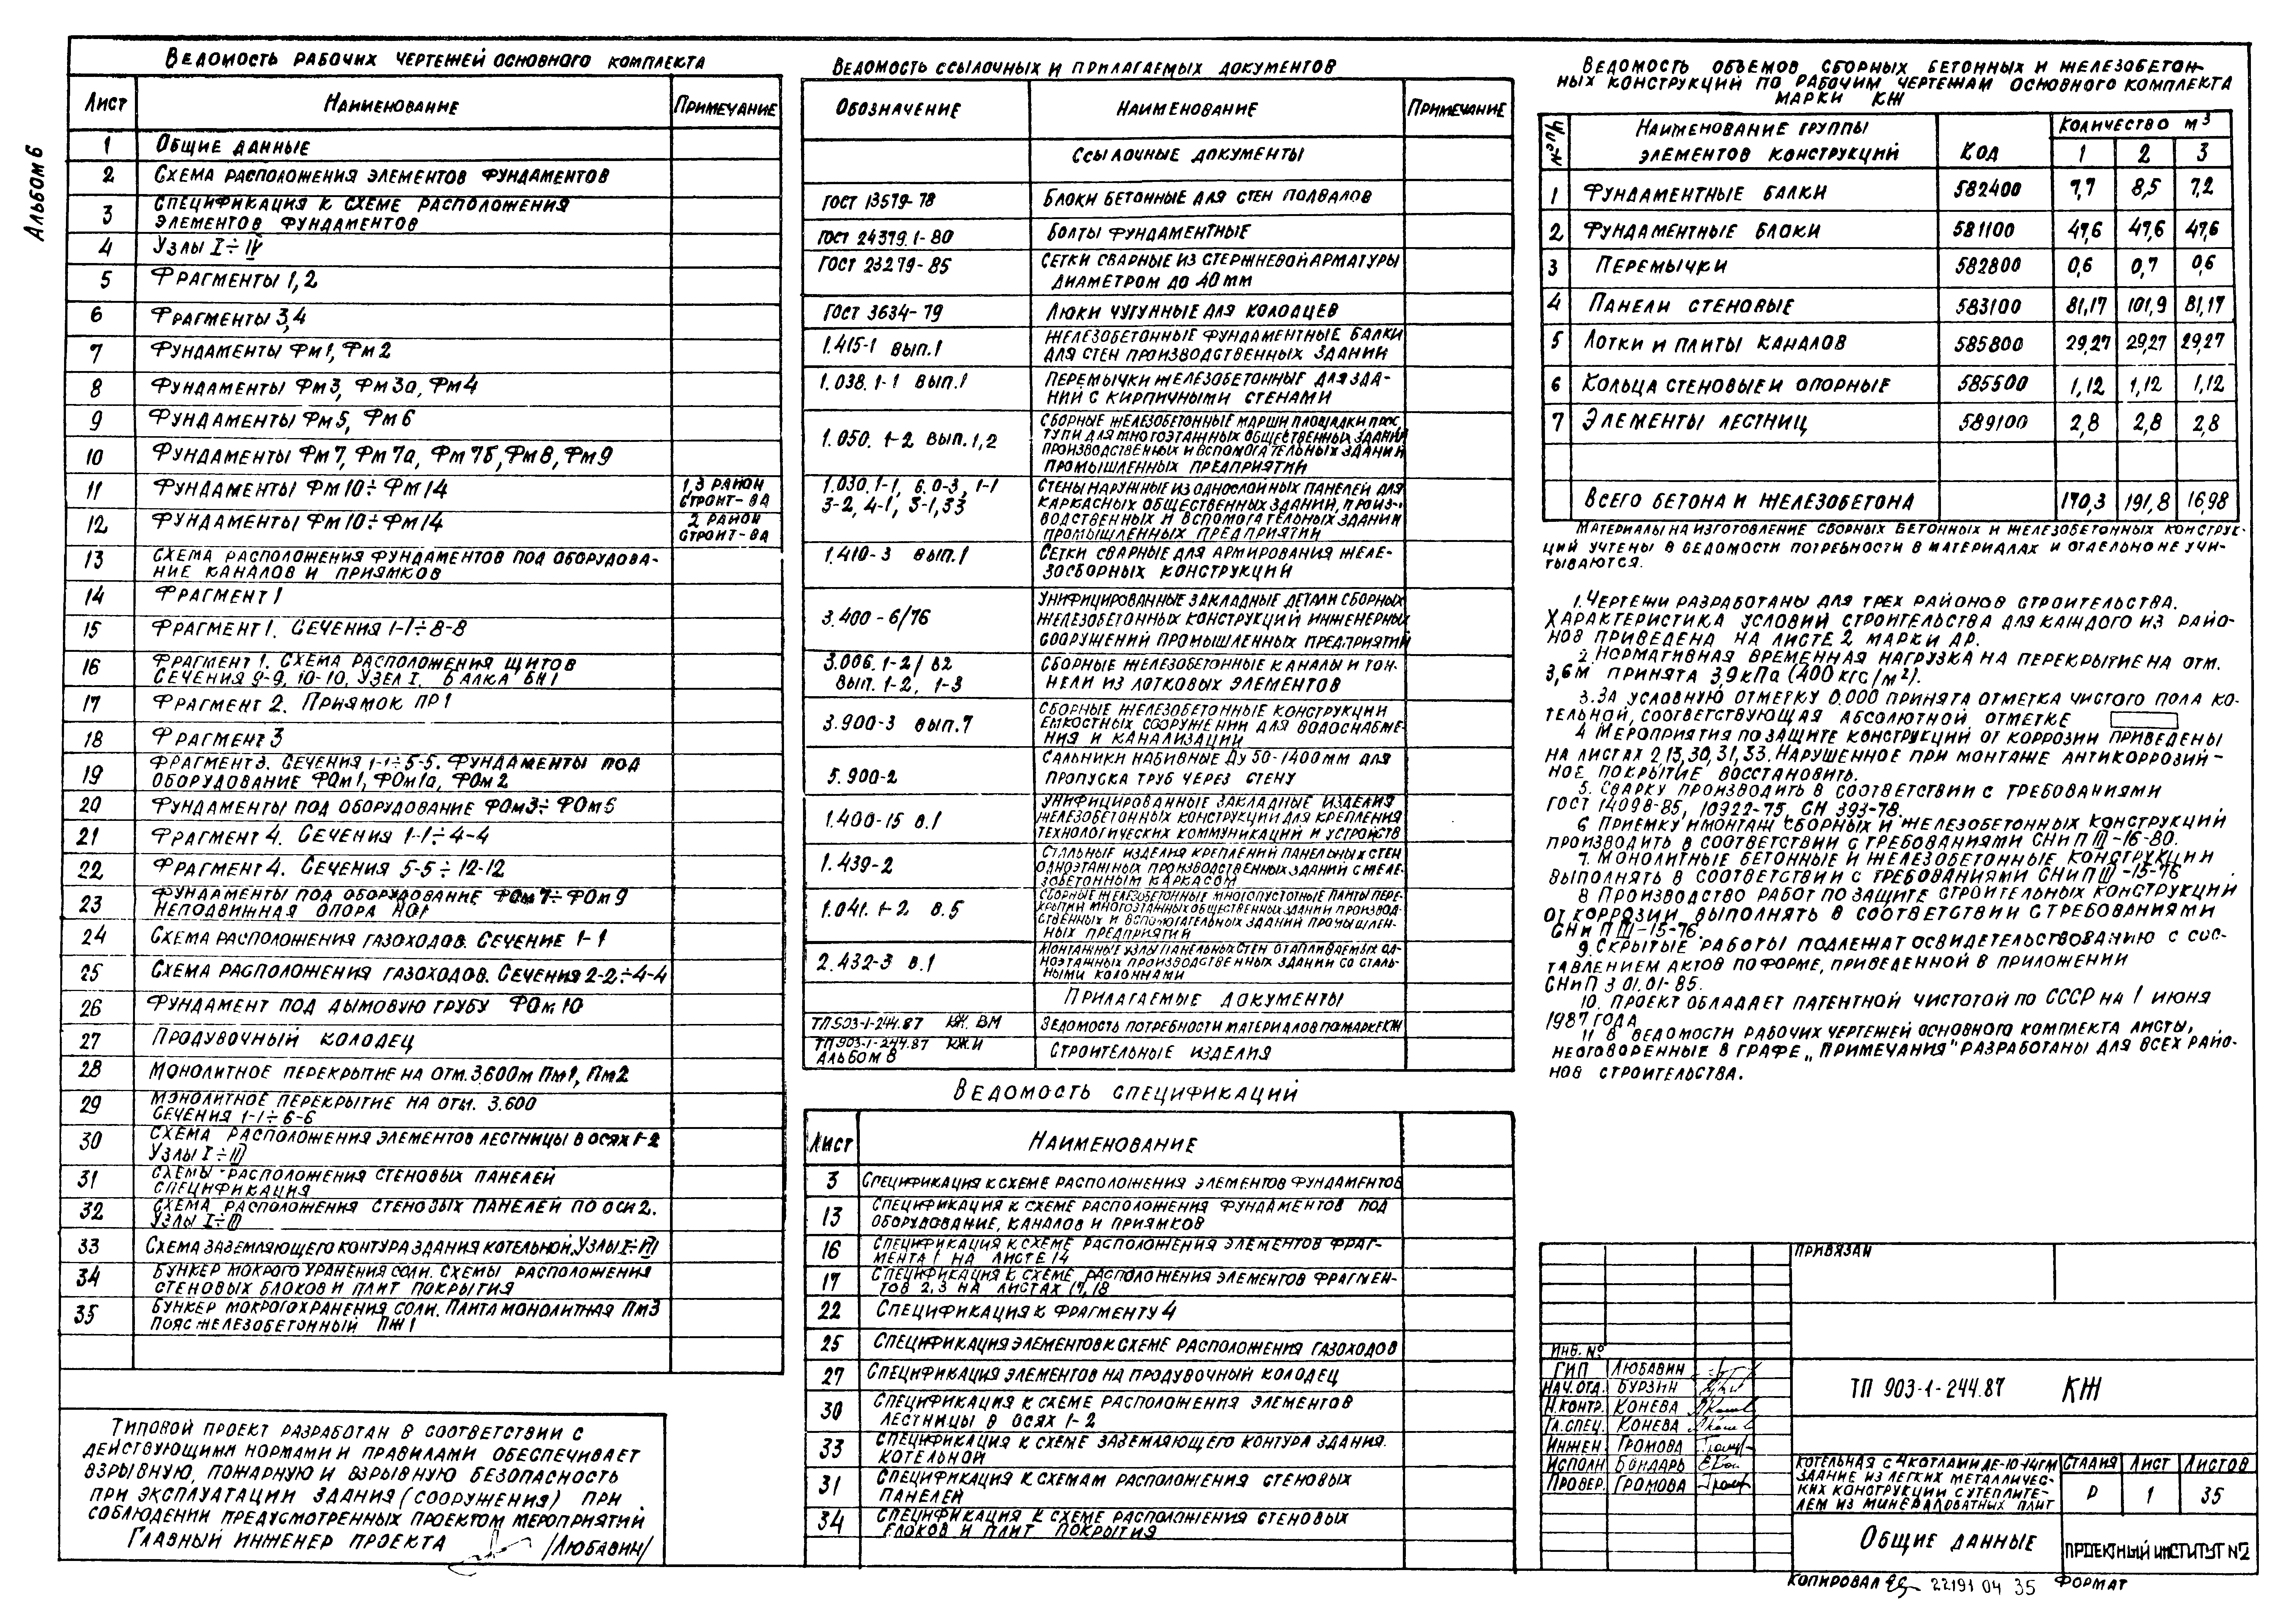 Альбом 6
Ведомость рабочих чертежей основного комплекта
Лист Наименование Примечание
1 Общие данные
2 Схема расположения элементов фундаментов
3 Спецификация к схеме расположения
элементов фундаментов
4 Узлы I÷IV
5 Фрагменты 1,2
6 Фрагменты 3,4
7 Фундаменты Фм1, Фм2
8 Фундаменты Фм3, Фм3а, Фм4
9 Фундаменты Фм5, Фм6
10 Фундаменты Фм7, Фм7а, Фм7б, Фм8, Фм9
11 Фундаменты Фм10÷Фм14 1,3 район
строит-ва
12 Фундаменты Фм10÷Фм14 2 район
строит-ва
13 Схема расположения фундаментов под оборудова-
ние каналов и приямков
14 Фрагмент 1
15 Фрагмент 1. Сечения 1-1÷8-8
16 Фрагмент 1. Схема расположения щитов
Сечения 9-9, 10-10, Узел I. Балка БН1
17 Фрагмент 2. Приямок ПР1
18 Фрагмент 3
19 Фрагмент 3. Сечения 1-1÷5-5. Фундаменты под
оборудование ФОм1, ФОм1а, ФОм2
20 Фундаменты под оборудование ФОм3÷ФОм6
21 Фрагмент 4. Сечения 1-1÷4-4
22 Фрагмент 4. Сечения 5-5÷12-12
23 Фундаменты под оборудование ФОм7÷ФОм9
Неподвижная опора НО1
24 Схема расположения газоходов. Сечение 1-1
25 Схема расположения газоходов. Сечения 2-2÷4-4
26 Фундамент под дымовую трубу ФОм10
27 Продувочный колодец
28 Монолитное перекрытие на отм. 3.600м Пм1, Пм2
29 Монолитное перекрытие на отм. 3.600
Сечения 1-1÷6-6
30 Схема расположения элементов лестницы в осях 1-2
Узлы I÷III
31 Схемы расположения стеновых панелей
Спецификация
32 Схема расположения стеновых панелей по оси 2.
Узлы I÷III
33 Схема заземляющего контура здания котельной. Узлы I÷VI
34 Бункер мокрого хранения соли. Схемы расположения
стеновых блоков и плит покрытия
35 Бункер мокрого хранения соли. Плита монолитная Пм3
Пояс железобетонный ПЖ1
Типовой проект разработан в соответствии с
действующими нормами и правилами обеспечивает
взрывную, пожарную и взрывную безопасность
при эксплуатации здания (сооружения) при
соблюдении предусмотренных проектом мероприятий
Главный инженер проекта /Любавин/
Ведомость ссылочных и прилагаемых документов
Обозначение Наименование Примечание
Ссылочные документы
ГОСТ 13579-78 Блоки бетонные для стен подвалов
ГОСТ 24379.1-80 Болты фундаментные
ГОСТ 23279-85 Сетки сварные из стержневой арматуры
диаметром до 40мм
ГОСТ 3634-79 Люки чугунные для колодцев
1.415-1 вып.1 Железобетонные фундаментные балки
для стен производственных зданий
1.038.1-1 вып.1 Перемычки железобетонные для зда-
ний с кирпичными стенами
1.050.1-2 вып.1,2 Сборные железобетонные марши площадки прос
тупи для многоэтажных общественных зданий
производственных и вспомогательных зданий
промышленных предприятий
1.030.1-1, в.0-3, 1-1 Стены наружные из однослойных панелей для
3-2, 4-1, 3-1,33 каркасных общественных зданий, произ-
водственных и вспомогательных зданий
промышленных предприятий
1.410-3 вып.1 Сетки сварные для армирования желе-
зосборных конструкций
3.400-6/76 Унифицированные закладные детали сборных
железобетонных конструкций инженерных
сооружений промышленных предприятий
3.006.1-2/82 Сборные железобетонные каналы и тон-
вып. 1-2, 1-3 нели из лотковых элементов
3.900-3 вып.7 Сборные железобетонные конструкции
емкостных сооружении для водоснабже-
ния и канализации
5.900-2 Сальники набивные Ду 50-1400мм для
пропуска труб через стену
1.400-15 в.1 Унифицированные закладные изделия
железобетонных конструкций для крепления
технологических коммуникаций и устройств
1.439-2 Стальные изделия креплений панельных стен
одноэтажных производственных зданий с желе-
зобетонным каркасом
1.041.1-2 в.5 Сборные железобетонные многопустотные плиты пере-
крытий многоэтажных общественных здании производ-
ственных и вспомогательных зданий промышлен-
ных предприятий
2.432-3 в.1 Монтажные узлы панельных стен отапливаемых од-
ноэтажных производственных здании со сталь-
ными колоннами
Прилагаемые документы
ТП 903-1-244.87 КЖ.ВМ Ведомость потребности материалов по марке КЖ
ТП 903-1-244.87 КЖ.И
Альбом 8 Строительные изделия
Ведомость спецификаций
Лист Наименование
3 Спецификация к схеме расположения элементов фундаментов
13 Спецификация к схеме расположения фундаментов под
оборудование, каналов и приямков
16 Спецификация к схеме расположения элементов фраг-
мента 1 на листе 14
17 Спецификация к схеме расположения элементов фрагмен-
тов 2,3 на листах 17,18
22 Спецификация к фрагменту 4
25 Спецификация элементов к схеме расположения газоходов
27 Спецификация элементов на продувочный колодец
30 Спецификация к схеме расположения элементов
лестницы в осях 1-2
33 Спецификация к схеме заземляющего контура здания
котельной
31 Спецификация к схемам расположения стеновых
панелей
34 Спецификация к схеме расположения стеновых
блоков и плит покрытия
Ведомость объемов сборных бетонных и железобетон-
ных конструкций по рабочим чертежам основного комплекта
марки КЖ
Наименование группы элементов конструкций Код Количество м³
1 2 3
1 Фундаментные балки 582400 7,7 8,5 7,2
2 Фундаментные блоки 581100 47,6 47,6 47,6
3 Перемычки 582800 0,6 0,7 0,6
4 Панели стеновые 583100 81,17 101,9 81,17
5 Лотки и плиты каналов 585800 29,27 29,27 29,27
6 Кольца стеновые и опорные 585500 1,12 1,12 1,12
7 Элементы лестниц 589100 2,8 2,8 2,8
Всего бетона и железобетона 170,3 191,8 169,8
Материалы на изготовление сборных бетонных и железобетонных конструк-
ций учтены в ведомости потребности в материалах и отдельно не учи-
тываются.
1. Чертежи разработаны для трех районов строительства.
Характеристика условий строительства для каждого из райо-
нов приведена на листе 2 марки АР.
2. Нормативная временная нагрузка на перекрытие на отм.
3,6м принята 3,9кПа (400 кгс/м²).
3. За условную отметку 0.000 принята отметка чистого пола ко-
тельной, соответствующая абсолютной отметке
4 Мероприятия по защите конструкций от коррозии приведены
на листах 2,13,30,31,33. Нарушенное при монтаже антикоррозий-
ное покрытие восстановить.
5. Сварку производить в соответствии с требованиями
ГОСТ 14098-85, 10922-75, СН 393-78.
6 Приемку и монтаж сборных и железобетонных конструкций
производить в соответствии с требованиями СНиП III-16-80.
7. Монолитные бетонные и железобетонные конструкции
выполнять в соответствии с требованиями СНиП III-15-76
8 Производство работ по защите строительных конструкций
от коррозии выполнять в соответствии с требованиями
СНиП III-15-76.
9. Скрытые работы подлежат освидетельствованию с сос-
тавлением актов по форме, приведенной в приложении
СНиП 3.01.01-85.
10. Проект обладает патентной чистотой по СССР на 1 июня
1987 года
11 В ведомости рабочих чертежей основного комплекта листы,
неоговоренные в графе „Примечания" разработаны для всех райо-
нов строительства.
Привязан
Инв. №
ГИП Любавин
Нач.отд. Бурзин
Н.контр. Конева
Гл.спец. Конева
Инжен. Громова
Исполн Бондарь
Провер. Громова
ТП 903-1-244.87 КЖ
Котельная с 4 котлами ДЕ-10-14ГМ
Здание из легких металличес-
ких конструкции с утеплите-
лем из минераловатных плит
Стадия Лист Листов
Р 1 35
Общие данные
Проектный институт №2
Копировал 22191 04 35 Формат